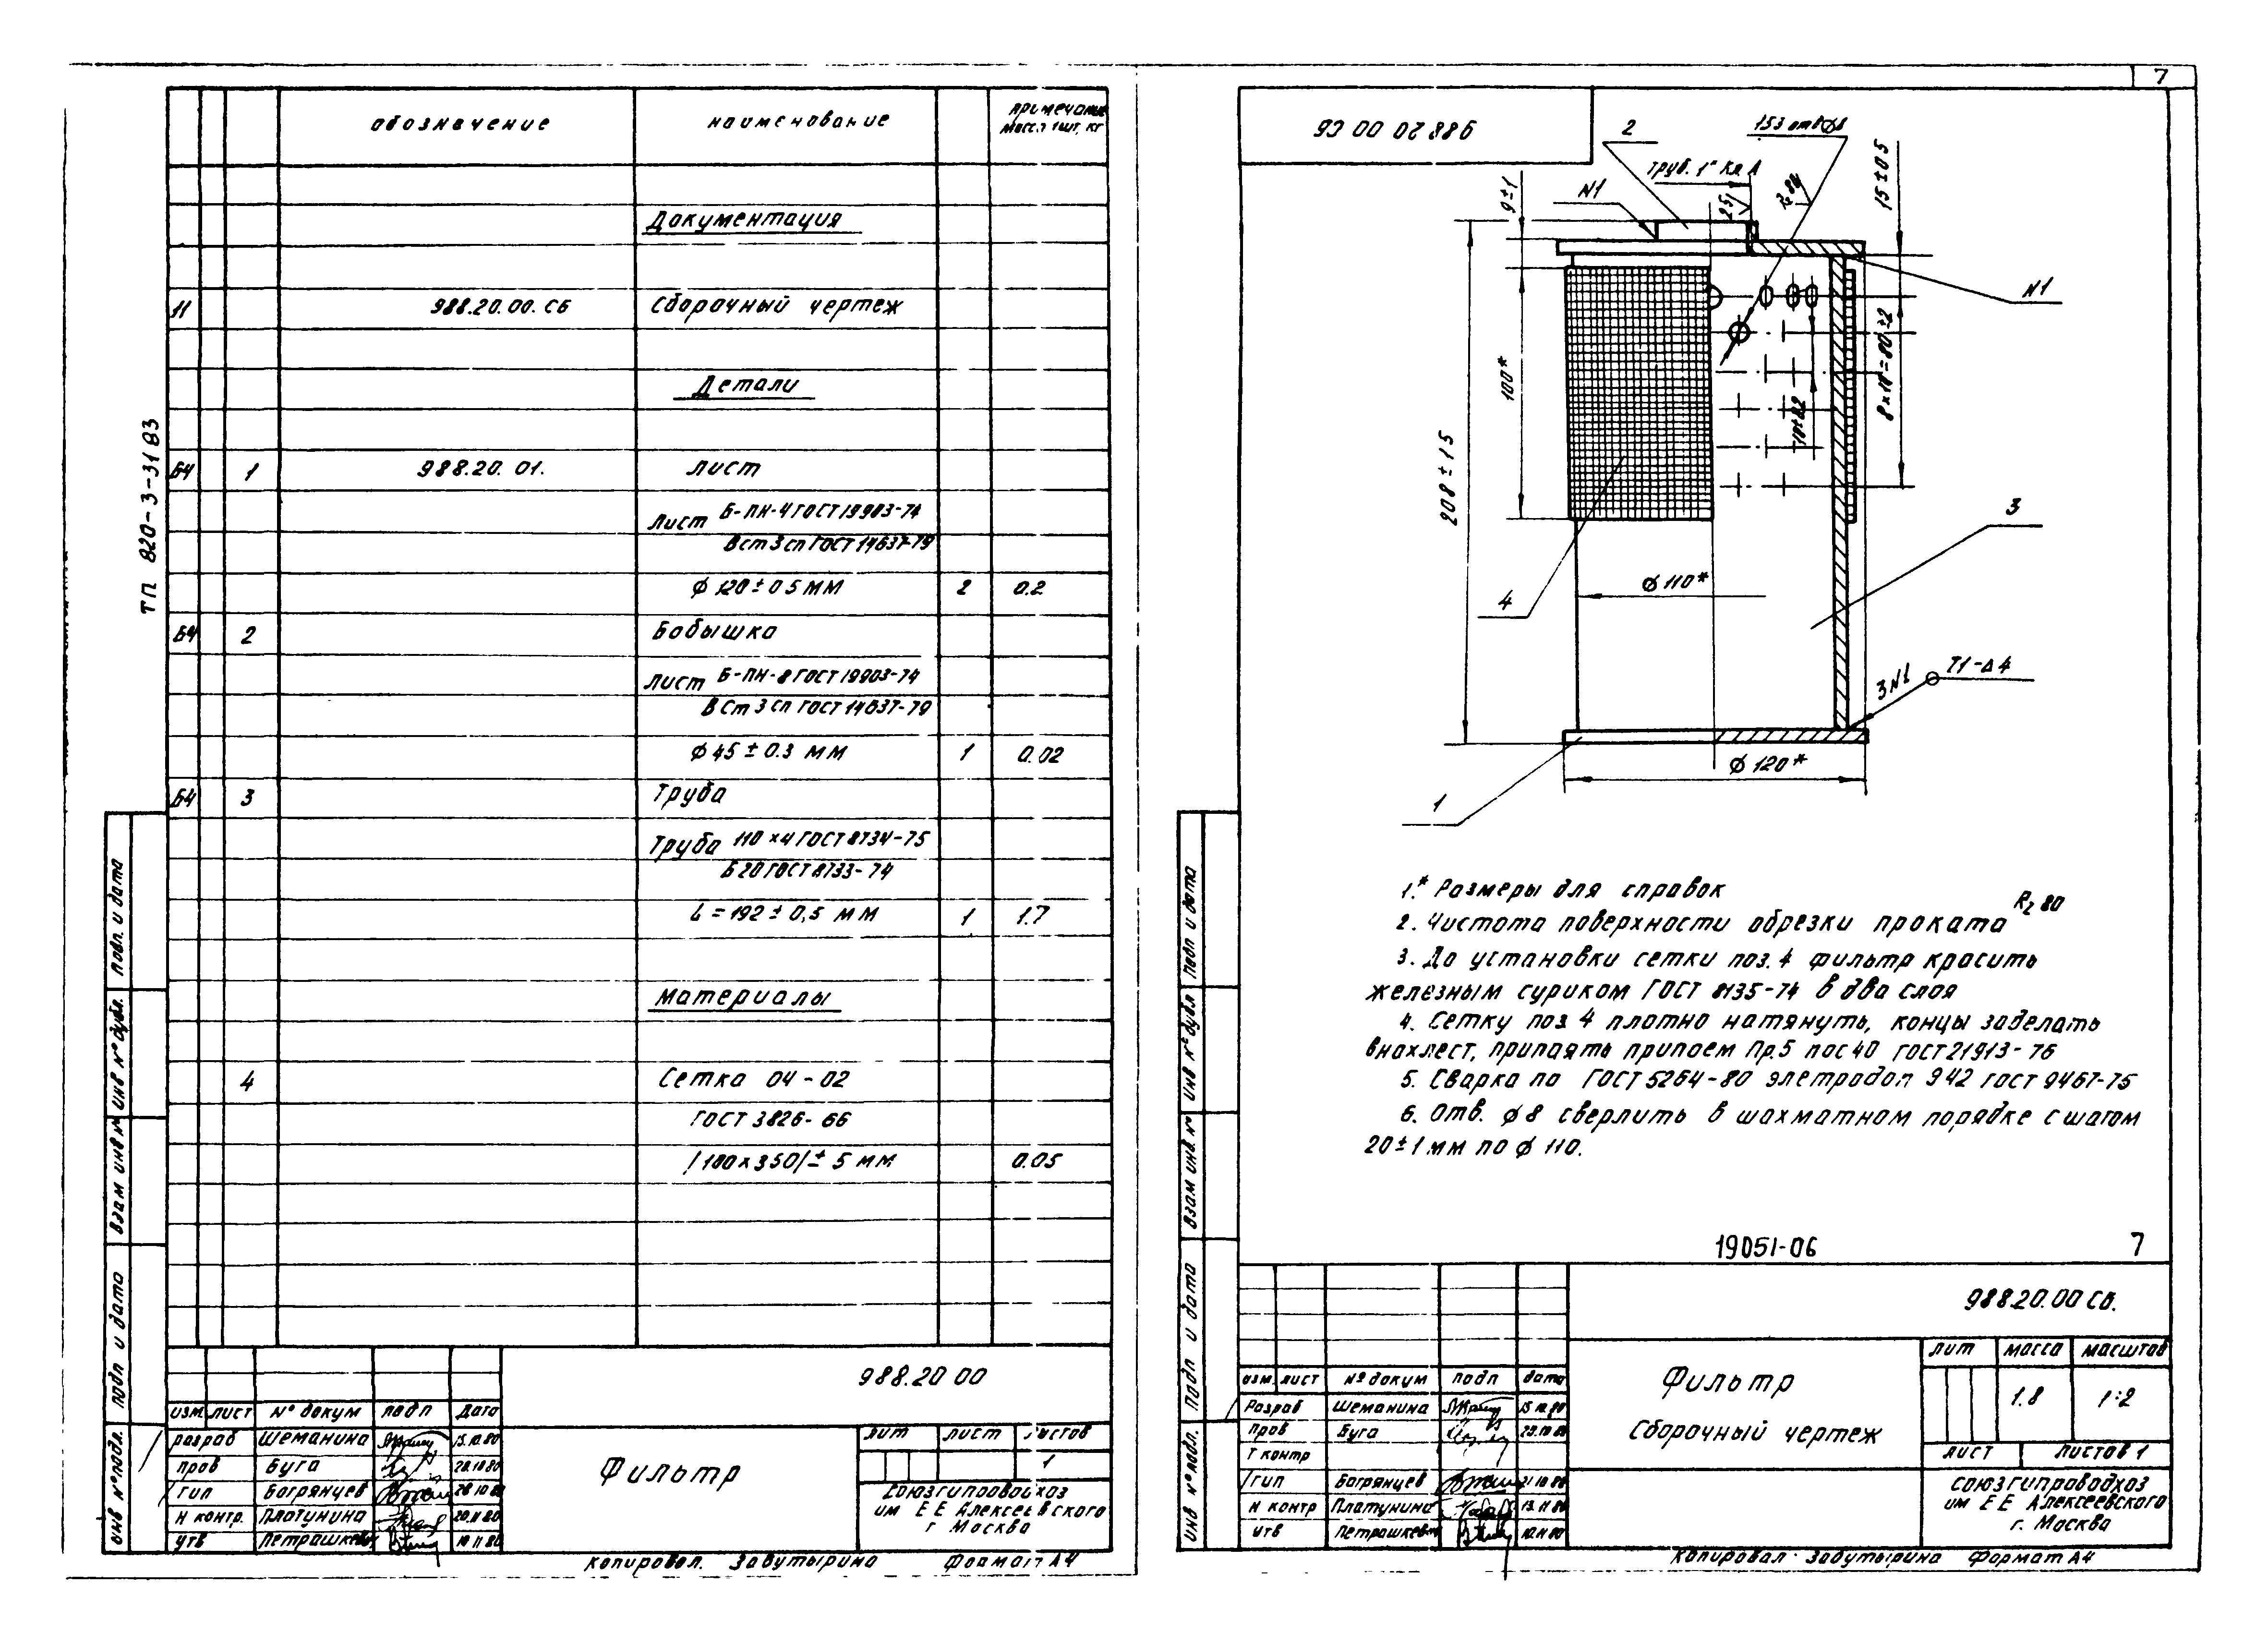 7
ТП 820-3-31 83
обозначение
наименование
примечание
масса 1шт, кг
Документация
11 988.20.00.СБ Сборочный чертеж
Детали
БЧ 1 988.20.01. лист
Лист Б-ПН-4 ГОСТ 19903-74
ВСт3сп ГОСТ 14637-79
ϕ 120 ± 0.5 мм 2 0.2
БЧ 2 Бобышка
Лист Б-ПН-8 ГОСТ 19903-74
ВСт3сп ГОСТ 14637-79
ϕ 45 ± 0.3 мм 1 0.02
БЧ 3 Труба
Труба 110×4 ГОСТ 8734-75
Б20 ГОСТ 8733-74
L = 192 ± 0,5 мм 1 1.7
Материалы
4 Сетка 04-02
ГОСТ 3826-66
/180×350/± 5 мм 0.05
Подп. и дата
инв №дубл.
взам инв №
подп и дата
инв №подл.
988.20 00
изм. лист № докум подп дата
разраб Шеманина 15.10.80
пров Буга 20.10.80
гип Багрянцев 28 10 80
н контр. Платунина 20.11 80
утв Петрашкевич 10 11 80
Фильтр
лит лист листов
1
Союзгипроводхоз
им Е Е Алексеевского
г Москва
Копировал. Забутырина Формат А4
988 20 00 СБ
2
153 отв ϕ8
Труб. 1" Кл А
N1
9±1
25
Rz 80
15±0.5
N1
8×10=80±2
100*
10±0.2
208±1.5
3
ϕ 110*
4
3N1
Т1-Δ4
ϕ 120*
1
1.* Размеры для справок
2. Чистота поверхности обрезки проката Rz 80
3. До установки сетки поз. 4 фильтр красить
железным суриком ГОСТ 8135-74 в два слоя
4. Сетку поз 4 плотно натянуть, концы заделать
внахлест, припаять припоем Пр.5 пос 40 ГОСТ 21913-76
5. Сварка по ГОСТ 5264-80 элетродоп Э42 ГОСТ 9467-75
6. Отв. ϕ 8 сверлить в шахматном порядке с шагом
20±1 мм по ϕ 110.
19051-06 7
Подп и дата
инв № дубл
взам инв. №
подп и дата
инв № подл.
988.20.00 СБ.
изм. лист № докум подп дата
Разраб Шеманина 15.10.80
Пров Буга 20.10 80
Т контр
гип Багрянцев 21 10 80
н контр Платунина 13.11 80
утв Петрашкевич 10.11 80
Фильтр
Сборочный чертеж
лит масса масштаб
1.8 1:2
лист листов 1
Союзгипроводхоз
им Е Е Алексеевского
г. Москва
Копировал. Забутырина Формат А4